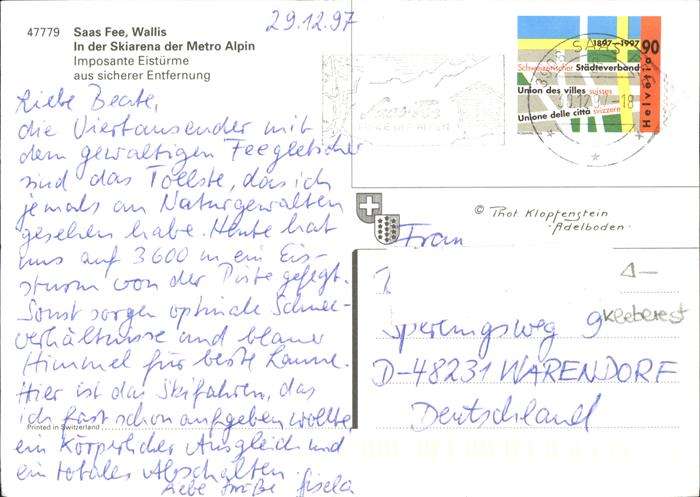 29.12.97
47779 Saas Fee, Wallis
In der Skiarena der Metro Alpin
Imposante Eistürme
aus sicherer Entfernung
Liebe Beate,
die Viertausender mit
dem gewaltigen Feegletscher
sind das Tollste, das ich
jemals an Naturgewalten
gesehen habe. Heute hat
uns auf 3600 m ein Eis-
sturm von der Piste gefegt.
Sonst sorgen optimale Schnee-
verhältnisse und blauer
Himmel für beste Laune.
Hier ist das Skifahren, das
ich fast schon aufgeben wollte,
ein körperlicher Ausgleich und
ein totales Abschalten.
Liebe Grüße Gisela
Printed in Switzerland
1897–1997 90
Schweizerischer Städteverband
Union des villes suisses
Unione delle città svizzere
Helvetia
3906 SAAS
29.12.97-18
© Thot Klopfenstein
Adelboden
Frau
Sperlingsweg 9
Kleberest
D-48231 WARENDORF
Deutschland